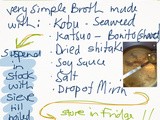 very simple Broth made
with: • Kobu - Seaweed
• Katsuo - Bonito shaved
• Dried shitake
• Soy Sauce
• Salt
• Drop of Mirin
Suspend
in
stock
with
sieve
till
boiled
store in fridge!!